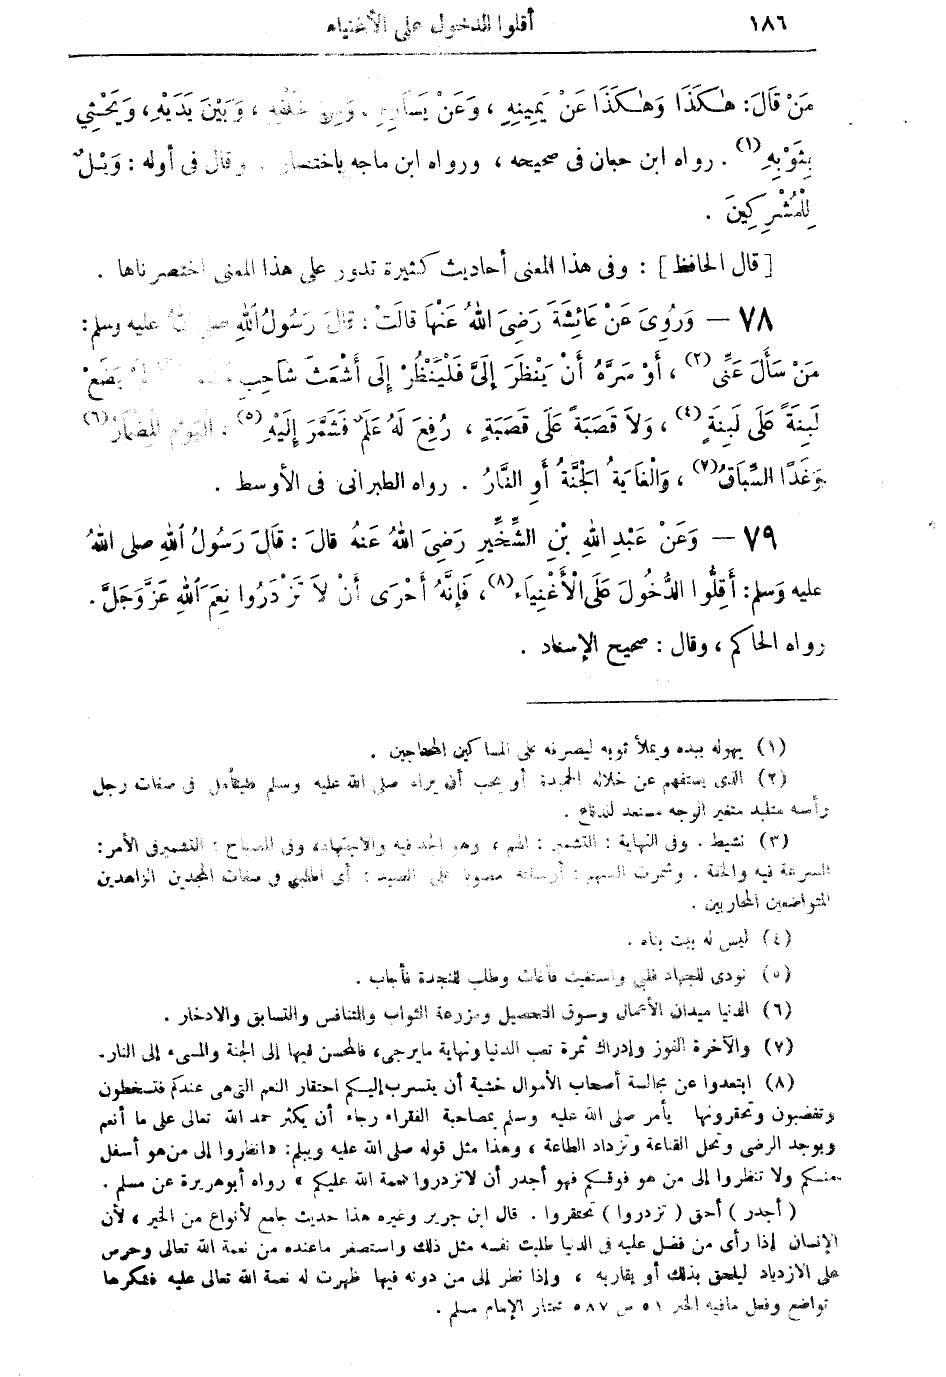 ١٨٦ أقلوا الدخول على الأغنياء
مَنْ قَالَ: هٰكَذَا وَهٰكَذَا عَنْ يَمِينِهِ ، وَعَنْ يَسَارِهِ ، وَمِنْ خَلْفِهِ ، وَبَيْنَ يَدَيْهِ ، وَيَحْثِي
بِثَوْبِهِ (١) . رواه ابن حبان فى صحيحه ، ورواه ابن ماجه باختصار . وقال فى أوله : وَيْلٌ
لِلْمُشْرِكِينَ .
[ قال الحافظ ] : وفى هذا المعنى أحاديث كثيرة تدور على هذا المعنى اختصرناها .
٧٨ — وَرُوِىَ عَنْ عَائِشَةَ رَضِىَ اللهُ عَنْهَا قَالَتْ : قَالَ رَسُولُ اللهِ صلى اللهُ عليه وسلم :
مَنْ سَأَلَ عَنِّى (٢) ، أَوْ سَرَّهُ أَنْ يَنْظُرَ إِلَىَّ فَلْيَنْظُرْ إِلَى أَشْعَثَ شَاحِبٍ لَمْ يَضَعْ
لَبِنَةً عَلَى لَبِنَةٍ (٤) ، وَلاَ قَصَبَةً عَلَى قَصَبَةٍ ، رُفِعَ لَهُ عَلَمٌ فَشَمَّرَ إِلَيْهِ (٥) ، الْيَوْمَ الْمِضْمَارُ (٦)
وَغَدًا السِّبَاقُ (٧) ، وَالْغَايَةُ الْجَنَّةُ أَوِ النَّارُ . رواه الطبرانى فى الأوسط .
٧٩ — وَعَنْ عَبْدِ اللهِ بْنِ الشِّخِّيرِ رَضِىَ اللهُ عَنْهُ قالَ : قَالَ رَسُولُ اللهِ صلى اللهُ
عليه وَسلم : أَقِلُّوا الدُّخُولَ عَلَى الْأَغْنِيَاءِ (٨) ، فَإِنَّهُ أَحْرَى أَنْ لاَ تَزْدَرُوا نِعَمَ اللهِ عَزَّ وَجَلَّ .
رواه الحاكم ، وقال : صحيح الإسناد .
(١) يهوله بيده ويملأ ثوبه ليصرفه على المساكين المحتاجين .
(٢) الذى يستفهم عن خلاله الحميدة أو يحب أن يراه صلى الله عليه وسلم فليتأمل فى صفات رجل
رأسه متلبد متغير الوجه مستعد للدفاع .
(٣) نشيط . وفى النهاية : التشمير : الهم ، وهو الجد فيه والاجتهاد، وفى المصباح : التشمير فى الأمر :
السرعة فيه والخفة . وشمرت السهم : أرسلته مصوبا على الصيد : أى اطلبنى فى صفات المجدين الزاهدين
المتواضعين المحاربين .
(٤) ليس له بيت بناه .
(٥) نودى للجهاد فلبى واستغيث فأغاث وطلب للنجدة فأجاب .
(٦) الدنيا ميدان الأعمال وسوق التحصيل ومزرعة الثواب والتنافس والتسابق والادخار .
(٧) والآخرة الفوز وإدراك ثمرة تعب الدنيا ونهاية مايرجى، فالمحسن فيها إلى الجنة والمسىء إلى النار.
(٨) ابتعدوا عن مجالسة أصحاب الأموال خشية أن يتسرب إليكم احتقار النعم التى هى عندكم فتسخطون
وتغضبون وتحقرونها يأمر صلى الله عليه وسلم بمصاحبة الفقراء رجاء أن يكثر حمد الله تعالى على ما أنعم
ويوجد الرضى وتحل القناعة وتزداد الطاعة ، وهذا مثل قوله صلى الله عليه وسلم : « انظروا إلى من هو أسفل
منكم ولا تنظروا إلى من هو فوقكم فهو أجدر أن لاتزدروا نعمة الله عليكم » رواه أبوهريرة عن مسلم .
( أجدر ) أحق ( تزدروا ) تحتقروا . قال ابن جرير وغيره هذا حديث جامع لأنواع من الخير ، لأن
الإنسان إذا رأى من فضل عليه فى الدنيا طلبت نفسه مثل ذلك واستصغر ماعنده من نعمة الله تعالى وحرص
على الازدياد ليلحق بذلك أو يقاربه ، وإذا نظر إلى من دونه فيها ظهرت له نعمة الله تعالى عليه فشكرها
تواضع وفعل مافيه الخير ٥١ ص ٥٨٧ مختار الإمام مسلم .